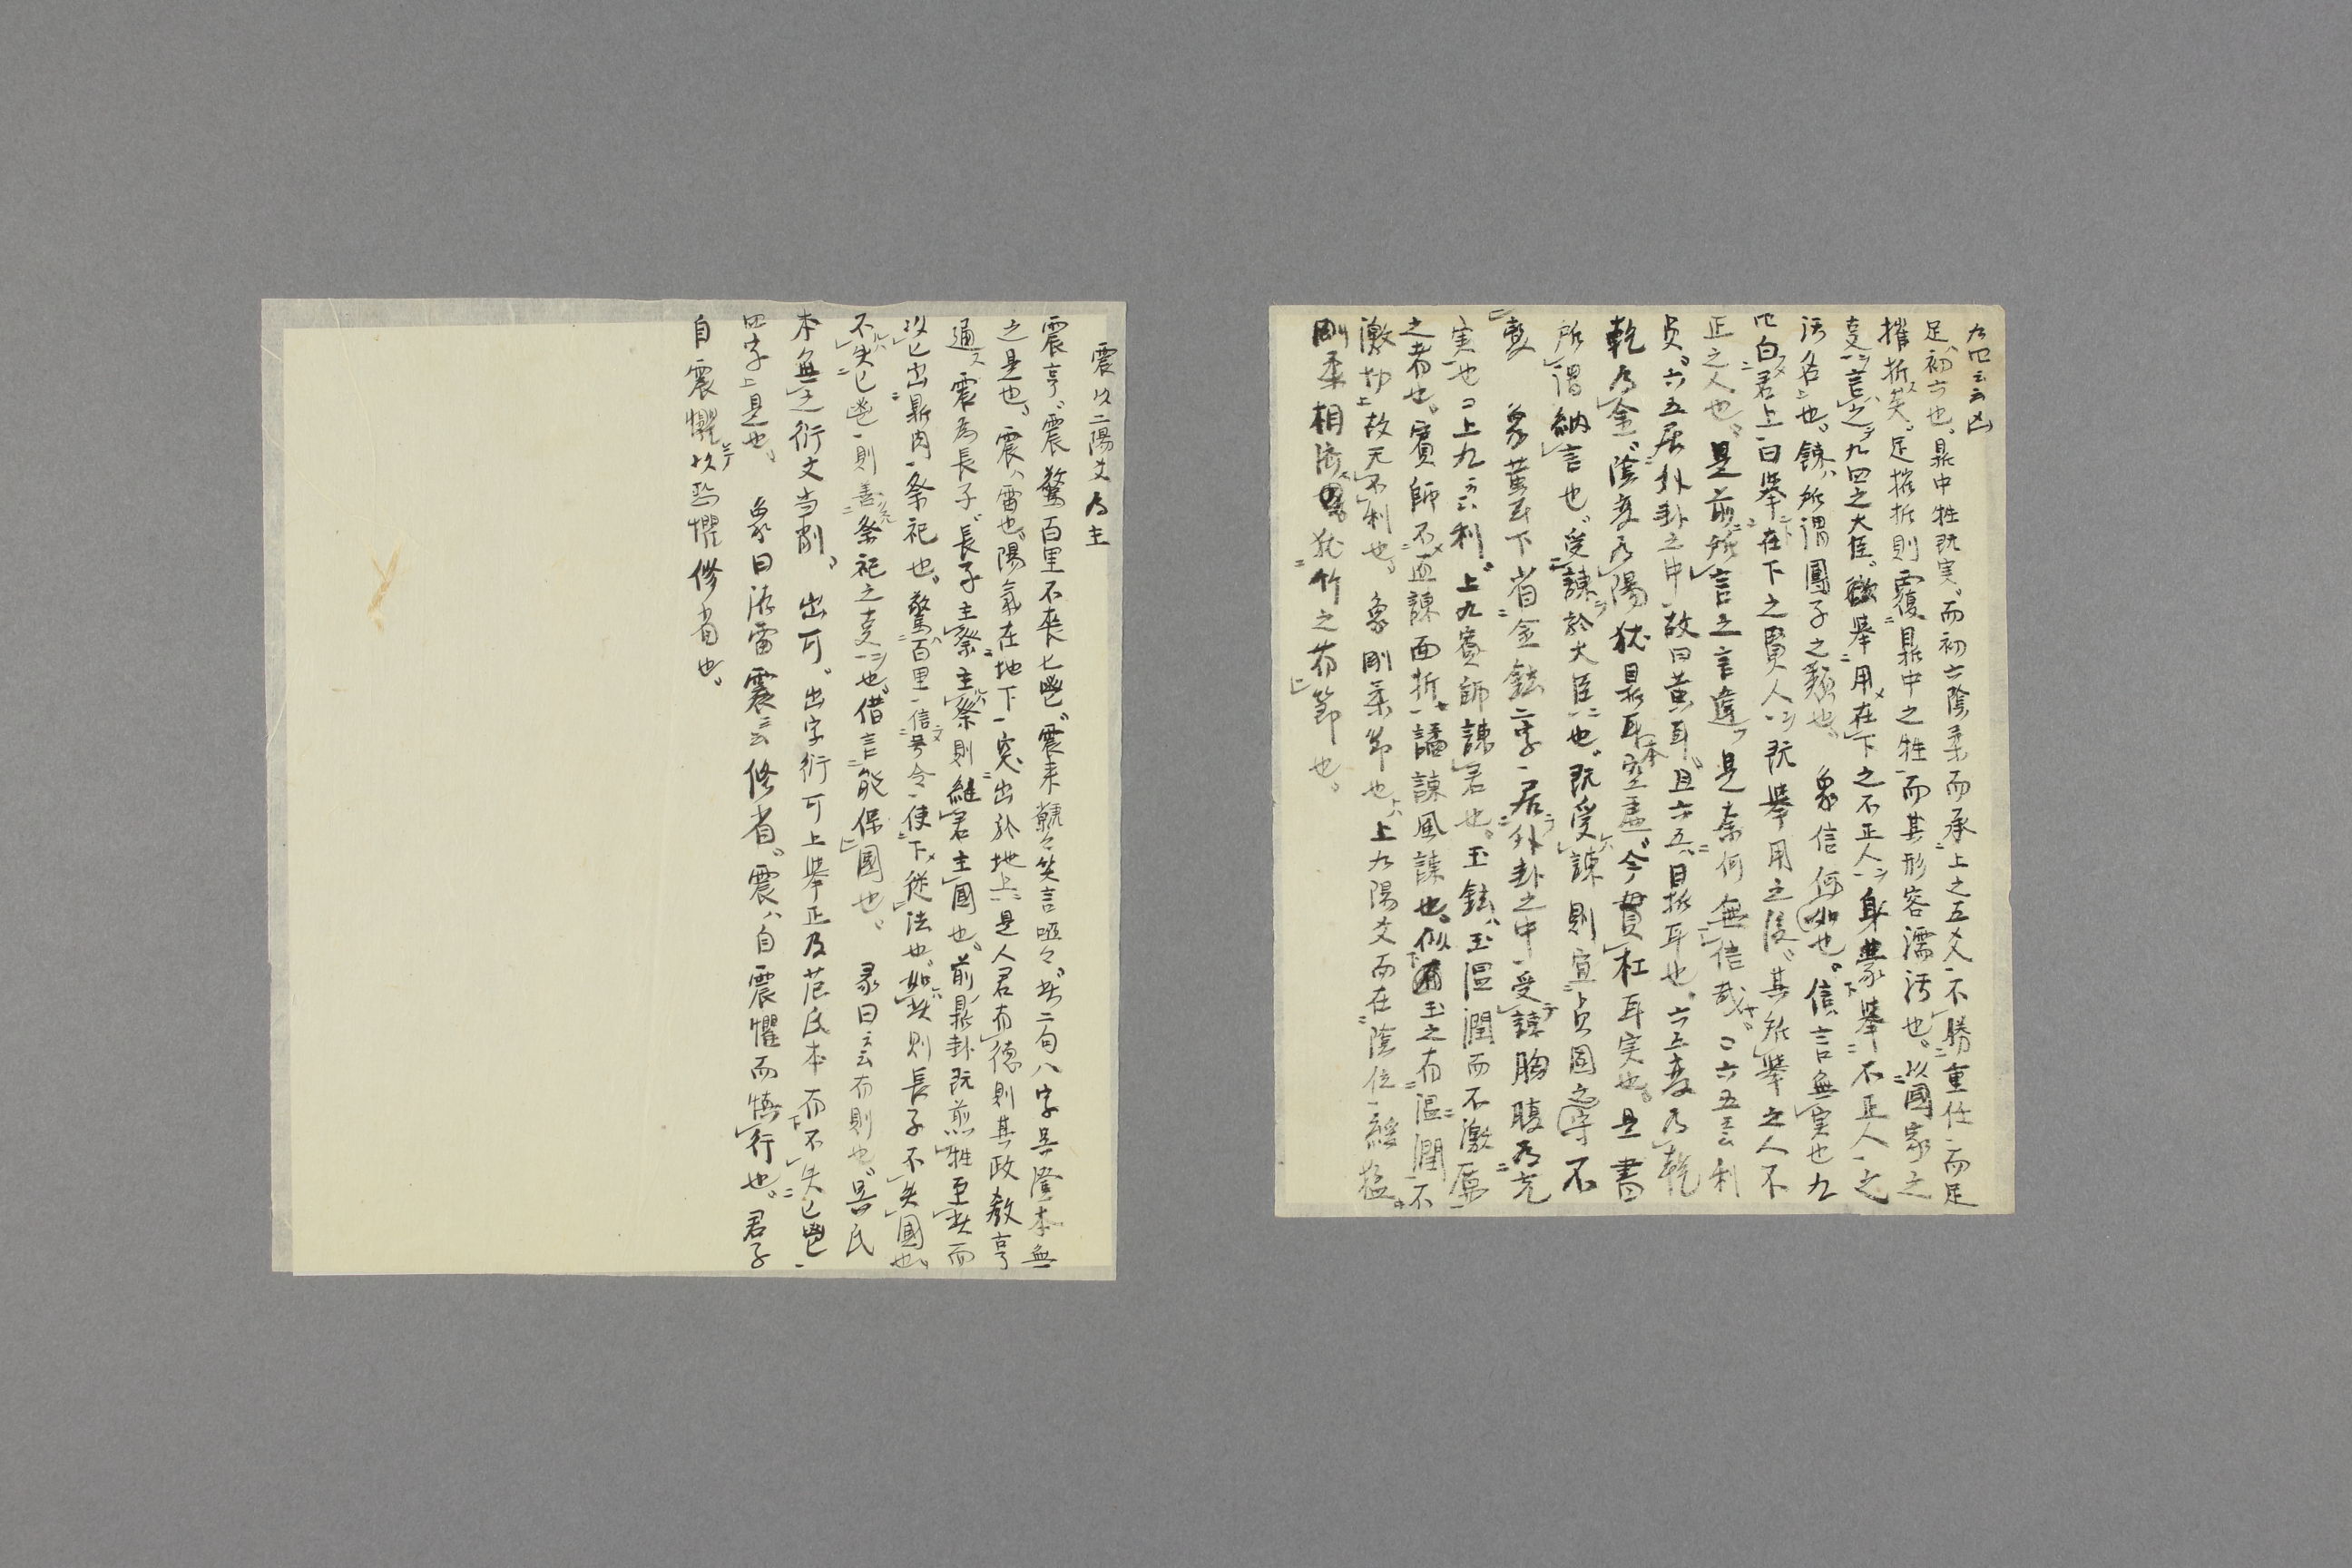 九四云云凶
足、初六也、鼎中牲既実、而初六陰柔而承上之五爻、不勝重任、而足
摧折矣、足摧折則覆鼎中之牲、而其形容濡汚也、以國家之
言之、九四之大臣、欲挙用在下之不正人、身挙不正人、之
汚名也、餗、所謂團子之類也、 象信何如也、信、言無実也九
四白君上、曰挙在下之賢人、既挙用之後、其所挙之人不
正之人也、是前所言之言違、是奈何無信哉、〇六五云利
貞、六五居外卦之中、故曰黄耳、且六五、目指耳也、六五変乃乾
乾乃金、陰変乃陽、犹鼎耳本空虚、今貫杠耳実也、且書
所謂納言也、受諌於大臣也、既受諌則宜貞固之守不
変 象黄耳下省金鉉二字、居外卦之中、受諌胸腹乃充
実也〇上九云云利、上九賓師諌君也、玉鉉、玉温潤而不激厲
之者也、賓師不直諌面折、譎諌風諌也、似玉之有温潤、不
激切上故无不利也、 象剛柔節也、上九陽爻而在陰位、緩猛
剛柔相済、犹竹之有節也、
震以二陽爻為主
震亨、震驚百里不喪匕鬯、震来虩々笑言啞々、此二句八字呉澄本無
之是也、震、雷也、陽気在地下、突出於地上、是人君有徳則其政教亨
通、震為長子、長子主祭、主祭則継君主國也、前鼎卦既煎牲至此而
以匕出鼎肉、祭祀也、驚百里、信号令、使下従法也、如此則長子不失國也、
不失匕鬯、則善祭祀之也、借言能保國也、 彖曰云云有則也、呉氏
本無之衍文当削、出可、出字衍可上挙正及范氏本有不失匕鬯、
四字上是也、 象曰洊雷震云云修省、震、自震懼而慎行也、君子
自震懼以恐懼修省也、